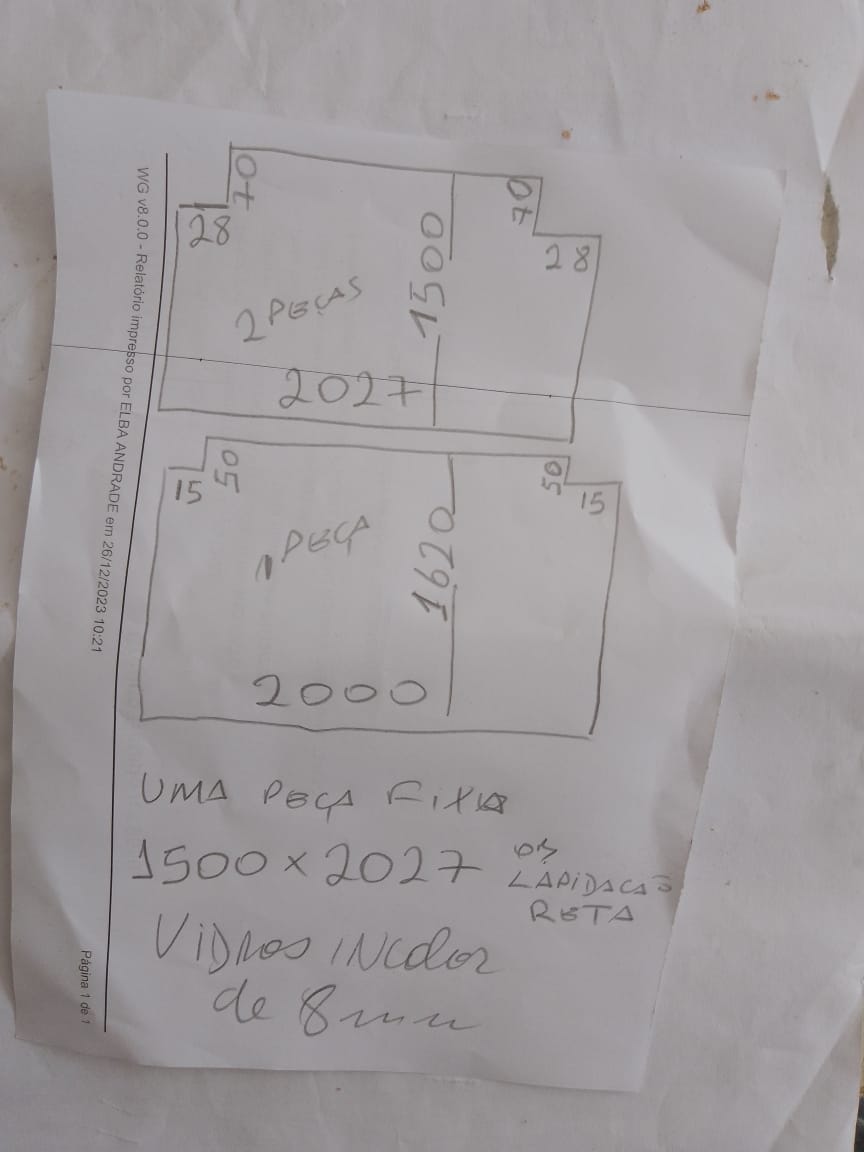 WG v8.0.0 - Relatório impresso por ELBA ANDRADE em 26/12/2023 10:21
Página 1 de 1
70
70
28
28
2 PEÇAS
1500
2027
50
50
15
15
1 PEÇA
1620
2000
UMA PEÇA FIXA
1500 x 2027
LAPIDACAÕ
RETA
VIDROS INColor
de 8mm